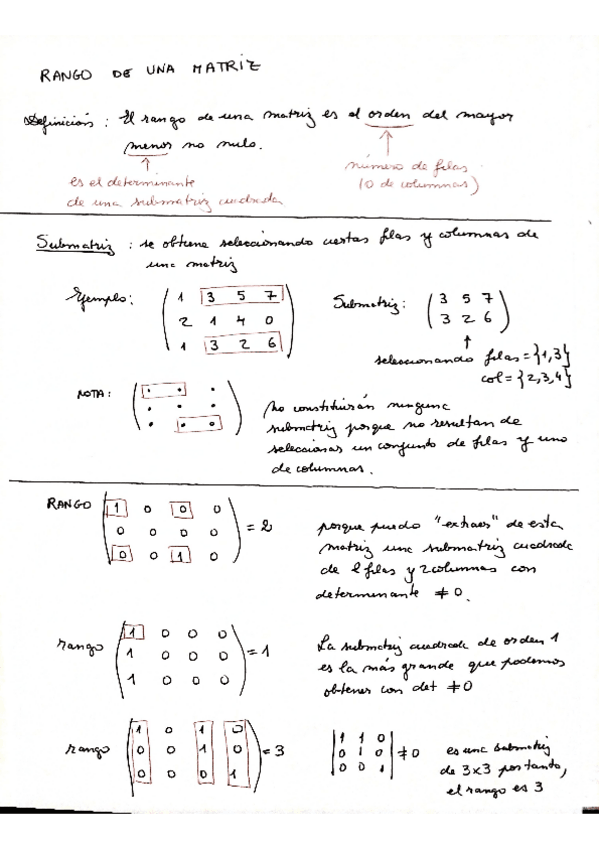 RANGO DE UNA MATRIZ
Definición: El rango de una matriz es el orden del mayor
menor no nulo.
es el determinante
de una submatriz cuadrada
número de filas
(o de columnas)
Submatriz: se obtiene seleccionando ciertas filas y columnas de
una matriz
Ejemplo:
1 3 5 7
2 1 4 0
1 3 2 6
Submatriz:
3 5 7
3 2 6
seleccionando filas = {1,3}
col = {2,3,4}
NOTA:
no constituirán ninguna
submatriz porque no resultan de
seleccionar un conjunto de filas y uno
de columnas.
RANGO
1 0 0 0
0 0 0 0
0 0 1 0
= 2
porque puedo "extraer" de esta
matriz una submatriz cuadrada
de 2 filas y 2 columnas con
determinante ≠ 0.
rango
1 0 0 0
1 0 0 0
1 0 0 0
= 1
La submatriz cuadrada de orden 1
es la más grande que podemos
obtener con det ≠ 0
rango
1 0 1 0
0 0 1 0
0 0 0 1
= 3
1 1 0
0 1 0
0 0 1
≠ 0
es una submatriz
de 3x3 por tanto,
el rango es 3